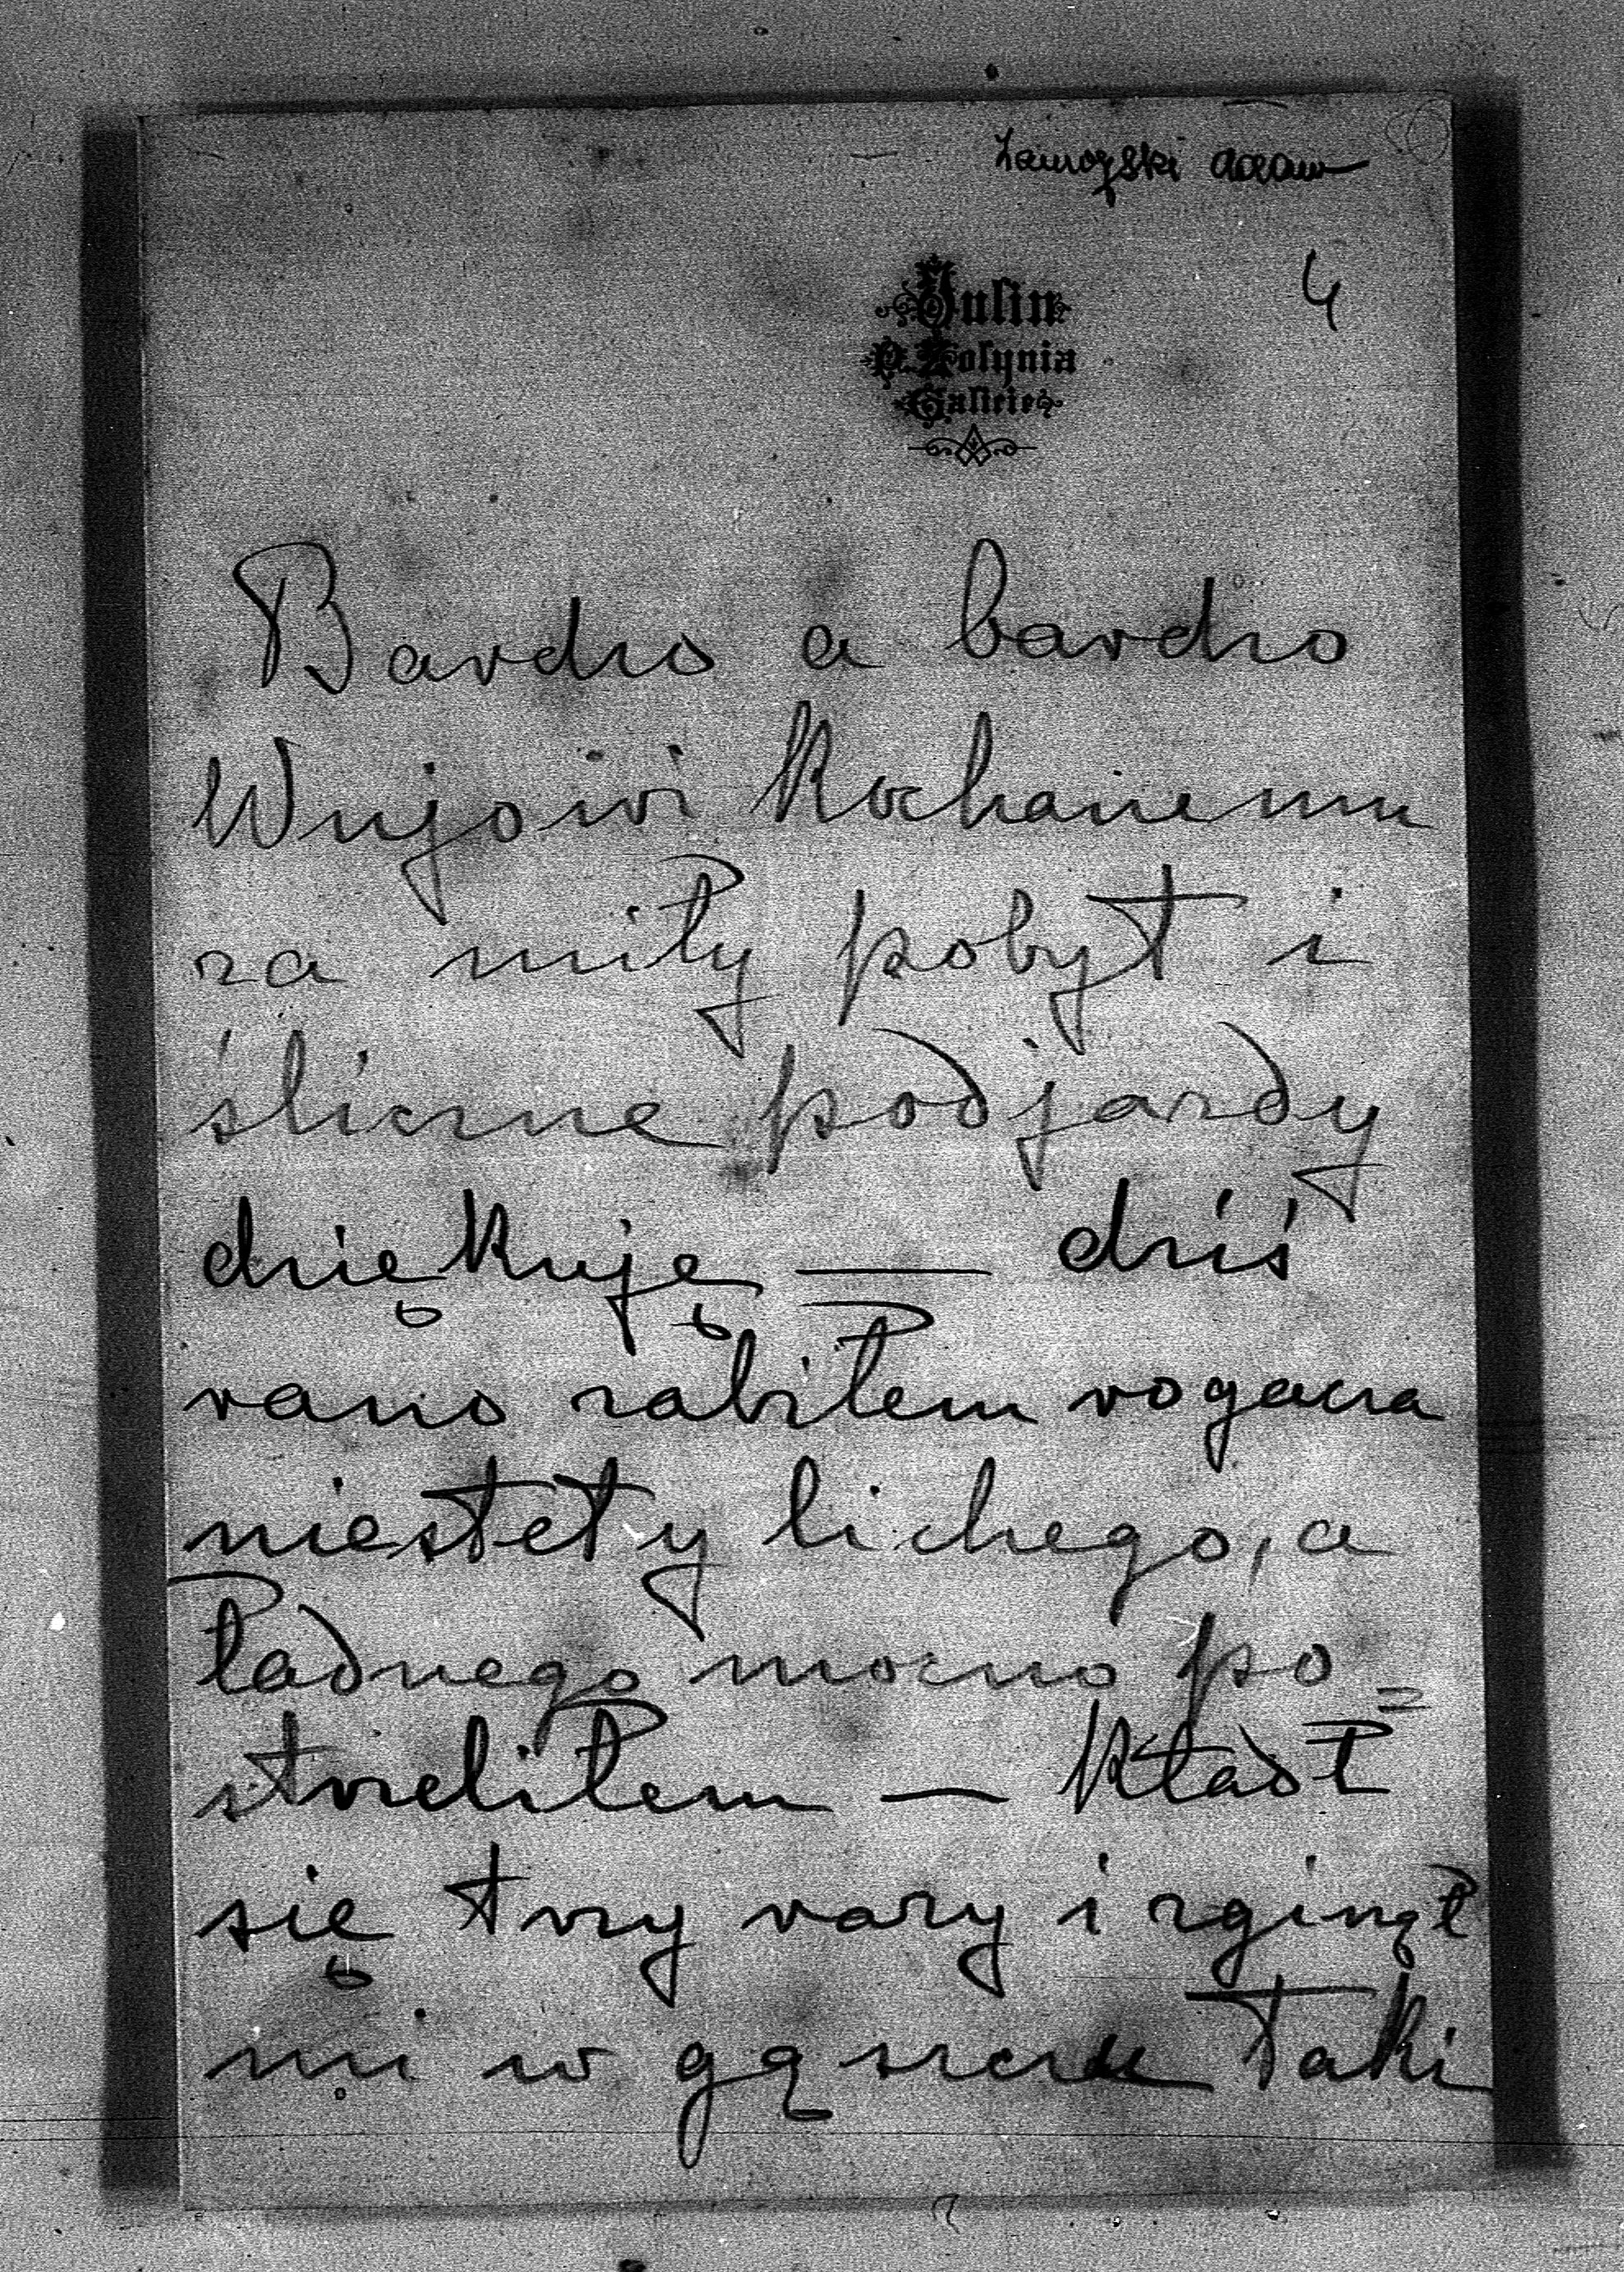 Zamoyski Adam
4
Julin
P. Żołynia
Galicie
Bardzo a bardzo
Wujowi Kochanemu
za miły pobyt i
śliczne podjazdy
dziękuję — dziś
rano zabiłem rogacza
niestety lichego, a
ładnego mocno po=
strzeliłem — kładł
się trzy razy i zginął
mi w gąszczu taki